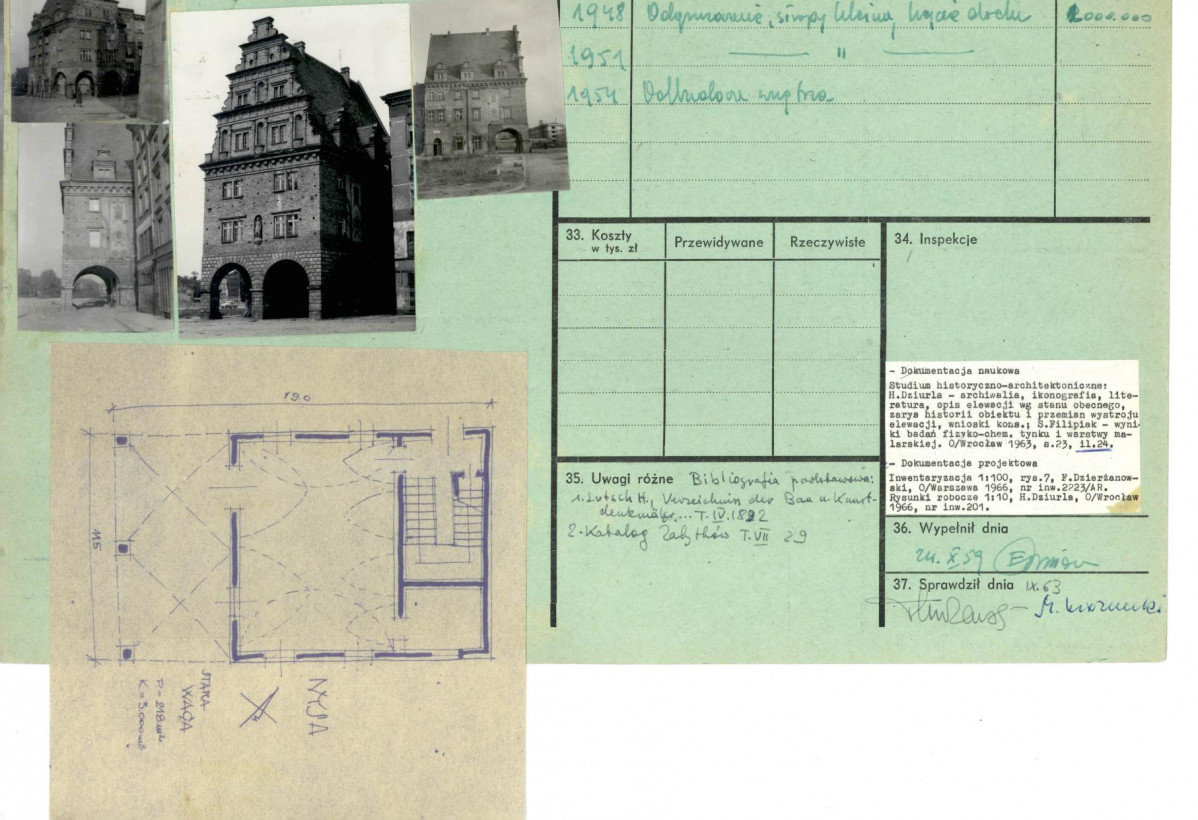 1948 Odgruzowanie, stropy Kleina, krycie dachu 2.000.000
1951 — " —
1954 Odbudowa wnętrza
33. Koszty
w tys. zł
Przewidywane
Rzeczywiste
34. Inspekcje
- Dokumentacja naukowa
Studium historyczno-architektoniczne:
H.Dziurla - archiwalia, ikonografia, lite-
ratura, opis elewacji wg stanu obecnego,
zarys historii obiektu i przemian wystroju
elewacji, wnioski kons.; S.Filipiak - wyni-
ki badań fizyko-chem. tynku i warstwy ma-
larskiej. O/Wrocław 1963, s.23, il.24.
- Dokumentacja projektowa
Inwentaryzacja 1:100, rys.7, F.Dzierżanow-
ski, O/Warszawa 1966, nr inw.2223/AR.
Rysunki robocze 1:10, H.Dziurla, O/Wrocław
1966, nr inw.201.
35. Uwagi różne Bibliografia podstawowa:
1. Lutsch H., Verzeichnis der Bau u. Kunst-
denkmäler... T. IV. 1892
2. Katalog Zabytków T. VII 29
36. Wypełnił dnia
24. X 59
37. Sprawdził dnia IX.63
19.0
11.5
NYSA
STARA
WAGA
P = 218 m²
K = 3.000 m³